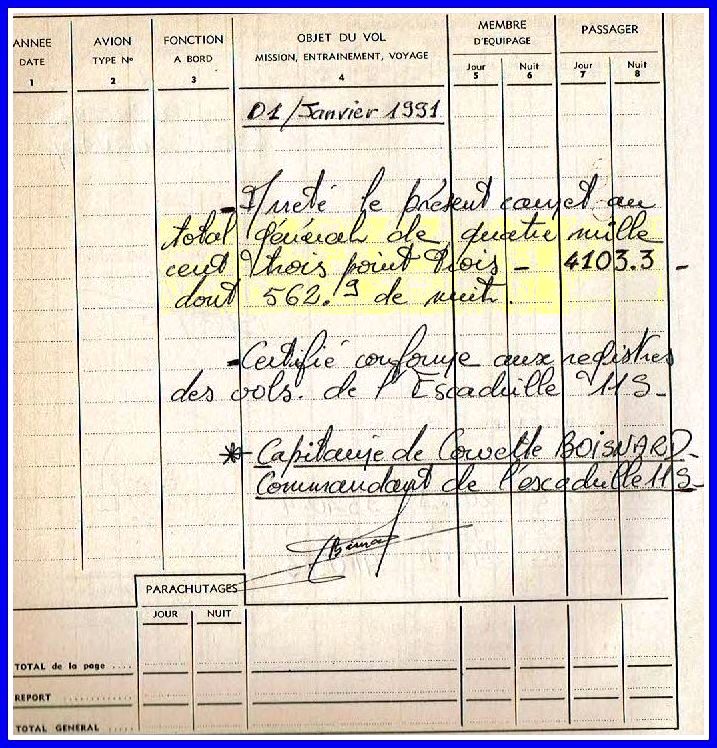 ANNEE AVION FONCTION OBJET DU VOL MEMBRE D'EQUIPAGE PASSAGER
DATE TYPE No A BORD MISSION, ENTRAINEMENT, VOYAGE Jour Nuit Jour Nuit
1 2 3 4 5 6 7 8
01/Janvier 1991
- Arreté le présent carnet au
total général de quatre mille
cent trois point trois - 4103.3 -
dont 562.9 de nuit.
- Certifié conforme aux registres
des vols. de l'Escadrille 11S -
* Capitaine de Corvette BOISNARD -
Commandant de l'escadrille 11S -
PARACHUTAGES
JOUR NUIT
TOTAL de la page ....
REPORT ....
TOTAL GENERAL ....